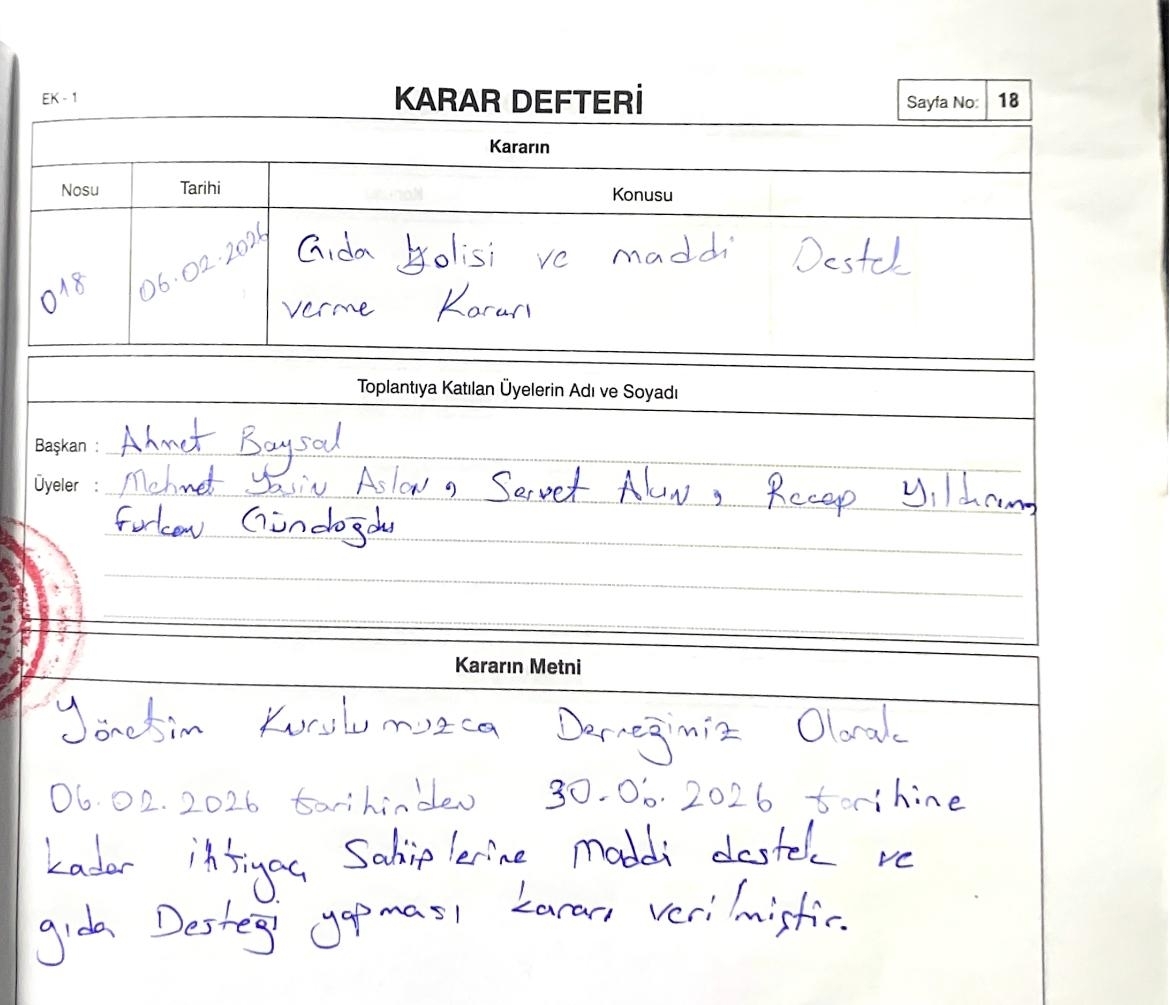 EK - 1
KARAR DEFTERİ
Sayfa No: 18
Kararın
Nosu
Tarihi
Konusu
018
06.02.2026
Gıda kolisi ve maddi Destek
verme Kararı
Toplantıya Katılan Üyelerin Adı ve Soyadı
Başkan : Ahmet Baysal
Üyeler : Mehmet Yasin Aslan, Servet Akın, Recep Yıldırım,
Furkan Gündoğdu
Kararın Metni
Yönetim Kurulumuzca Derneğimiz Olarak
06.02.2026 tarihinden 30.06.2026 tarihine
kadar ihtiyaç Sahiplerine Maddi destek ve
gıda Desteği yapması kararı verilmiştir.